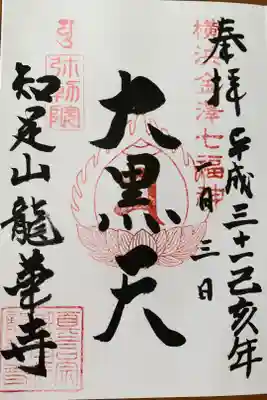 奉拝
平成三十一己亥年
一月三日
横浜金澤七福神
大黒天
弥勒院
知足山龍華寺